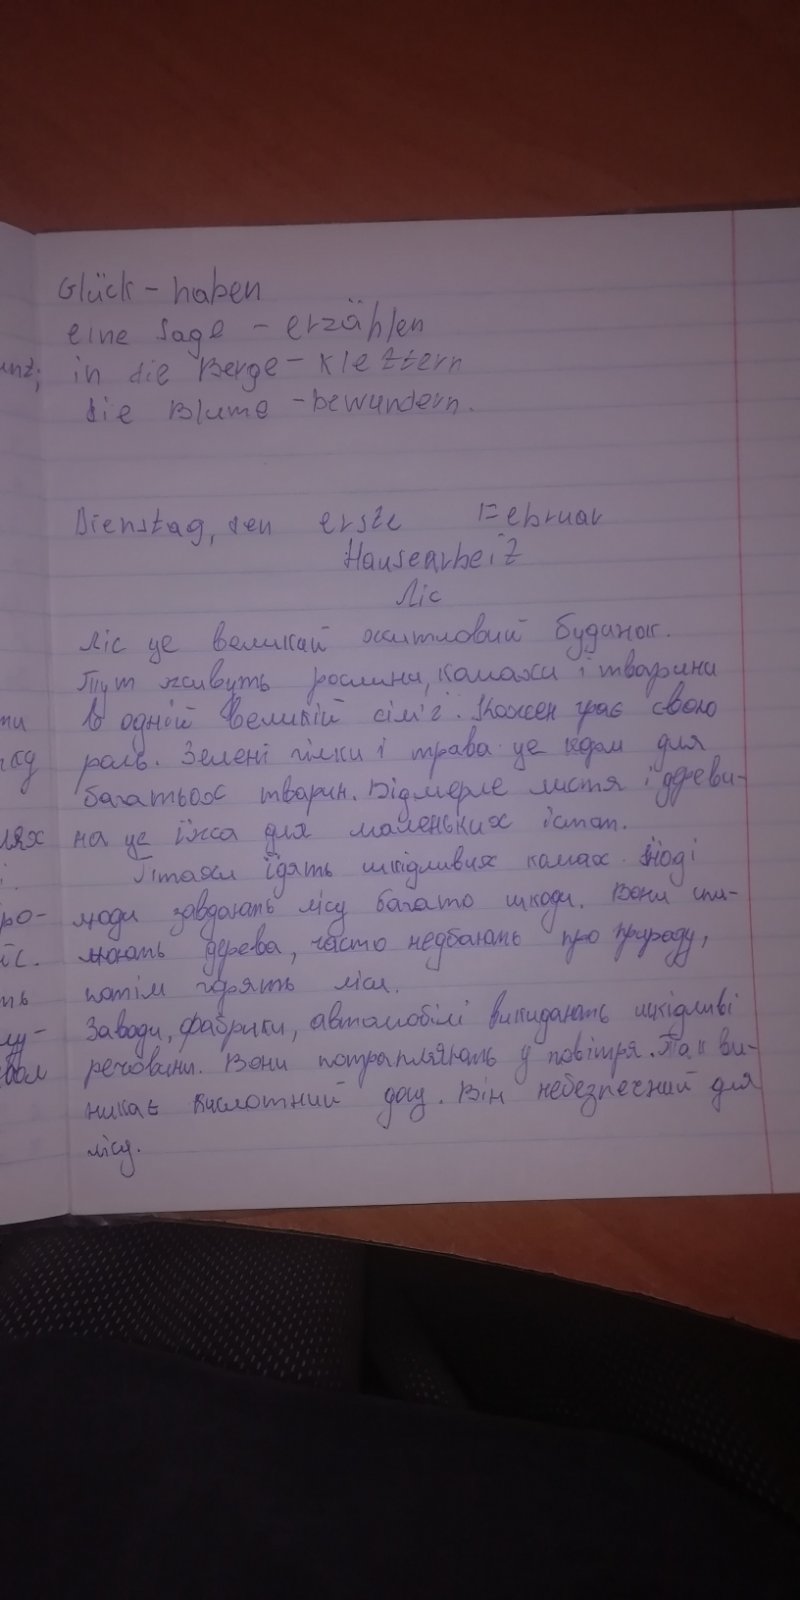 Glück - haben
eine Sage - erzählen
in die Berge - klettern
die Blume - bewundern.
Dienstag, den erste Februar
Hausearbeit
Ліс
Ліс це великий житловий будинок.
Тут живуть рослини, комахи і тварини
в одній великій сім'ї. Кожен грає свою
роль. Зелені гілки і трава це корм для
багатьох тварин. Відмерле листя і дереви-
на це їжа для маленьких істот.
Птахи їдять шкідливих комах. Іноді
люди завдають лісу багато шкоди. Вони спи-
люють дерева, часто недбають про природу,
потім горять ліси.
Заводи, фабрики, автомобілі викидають шкідливі
речовини. Вони потрапляють у повітря. Так ви-
никає кислотний дощ. Він небезпечний для
лісу.